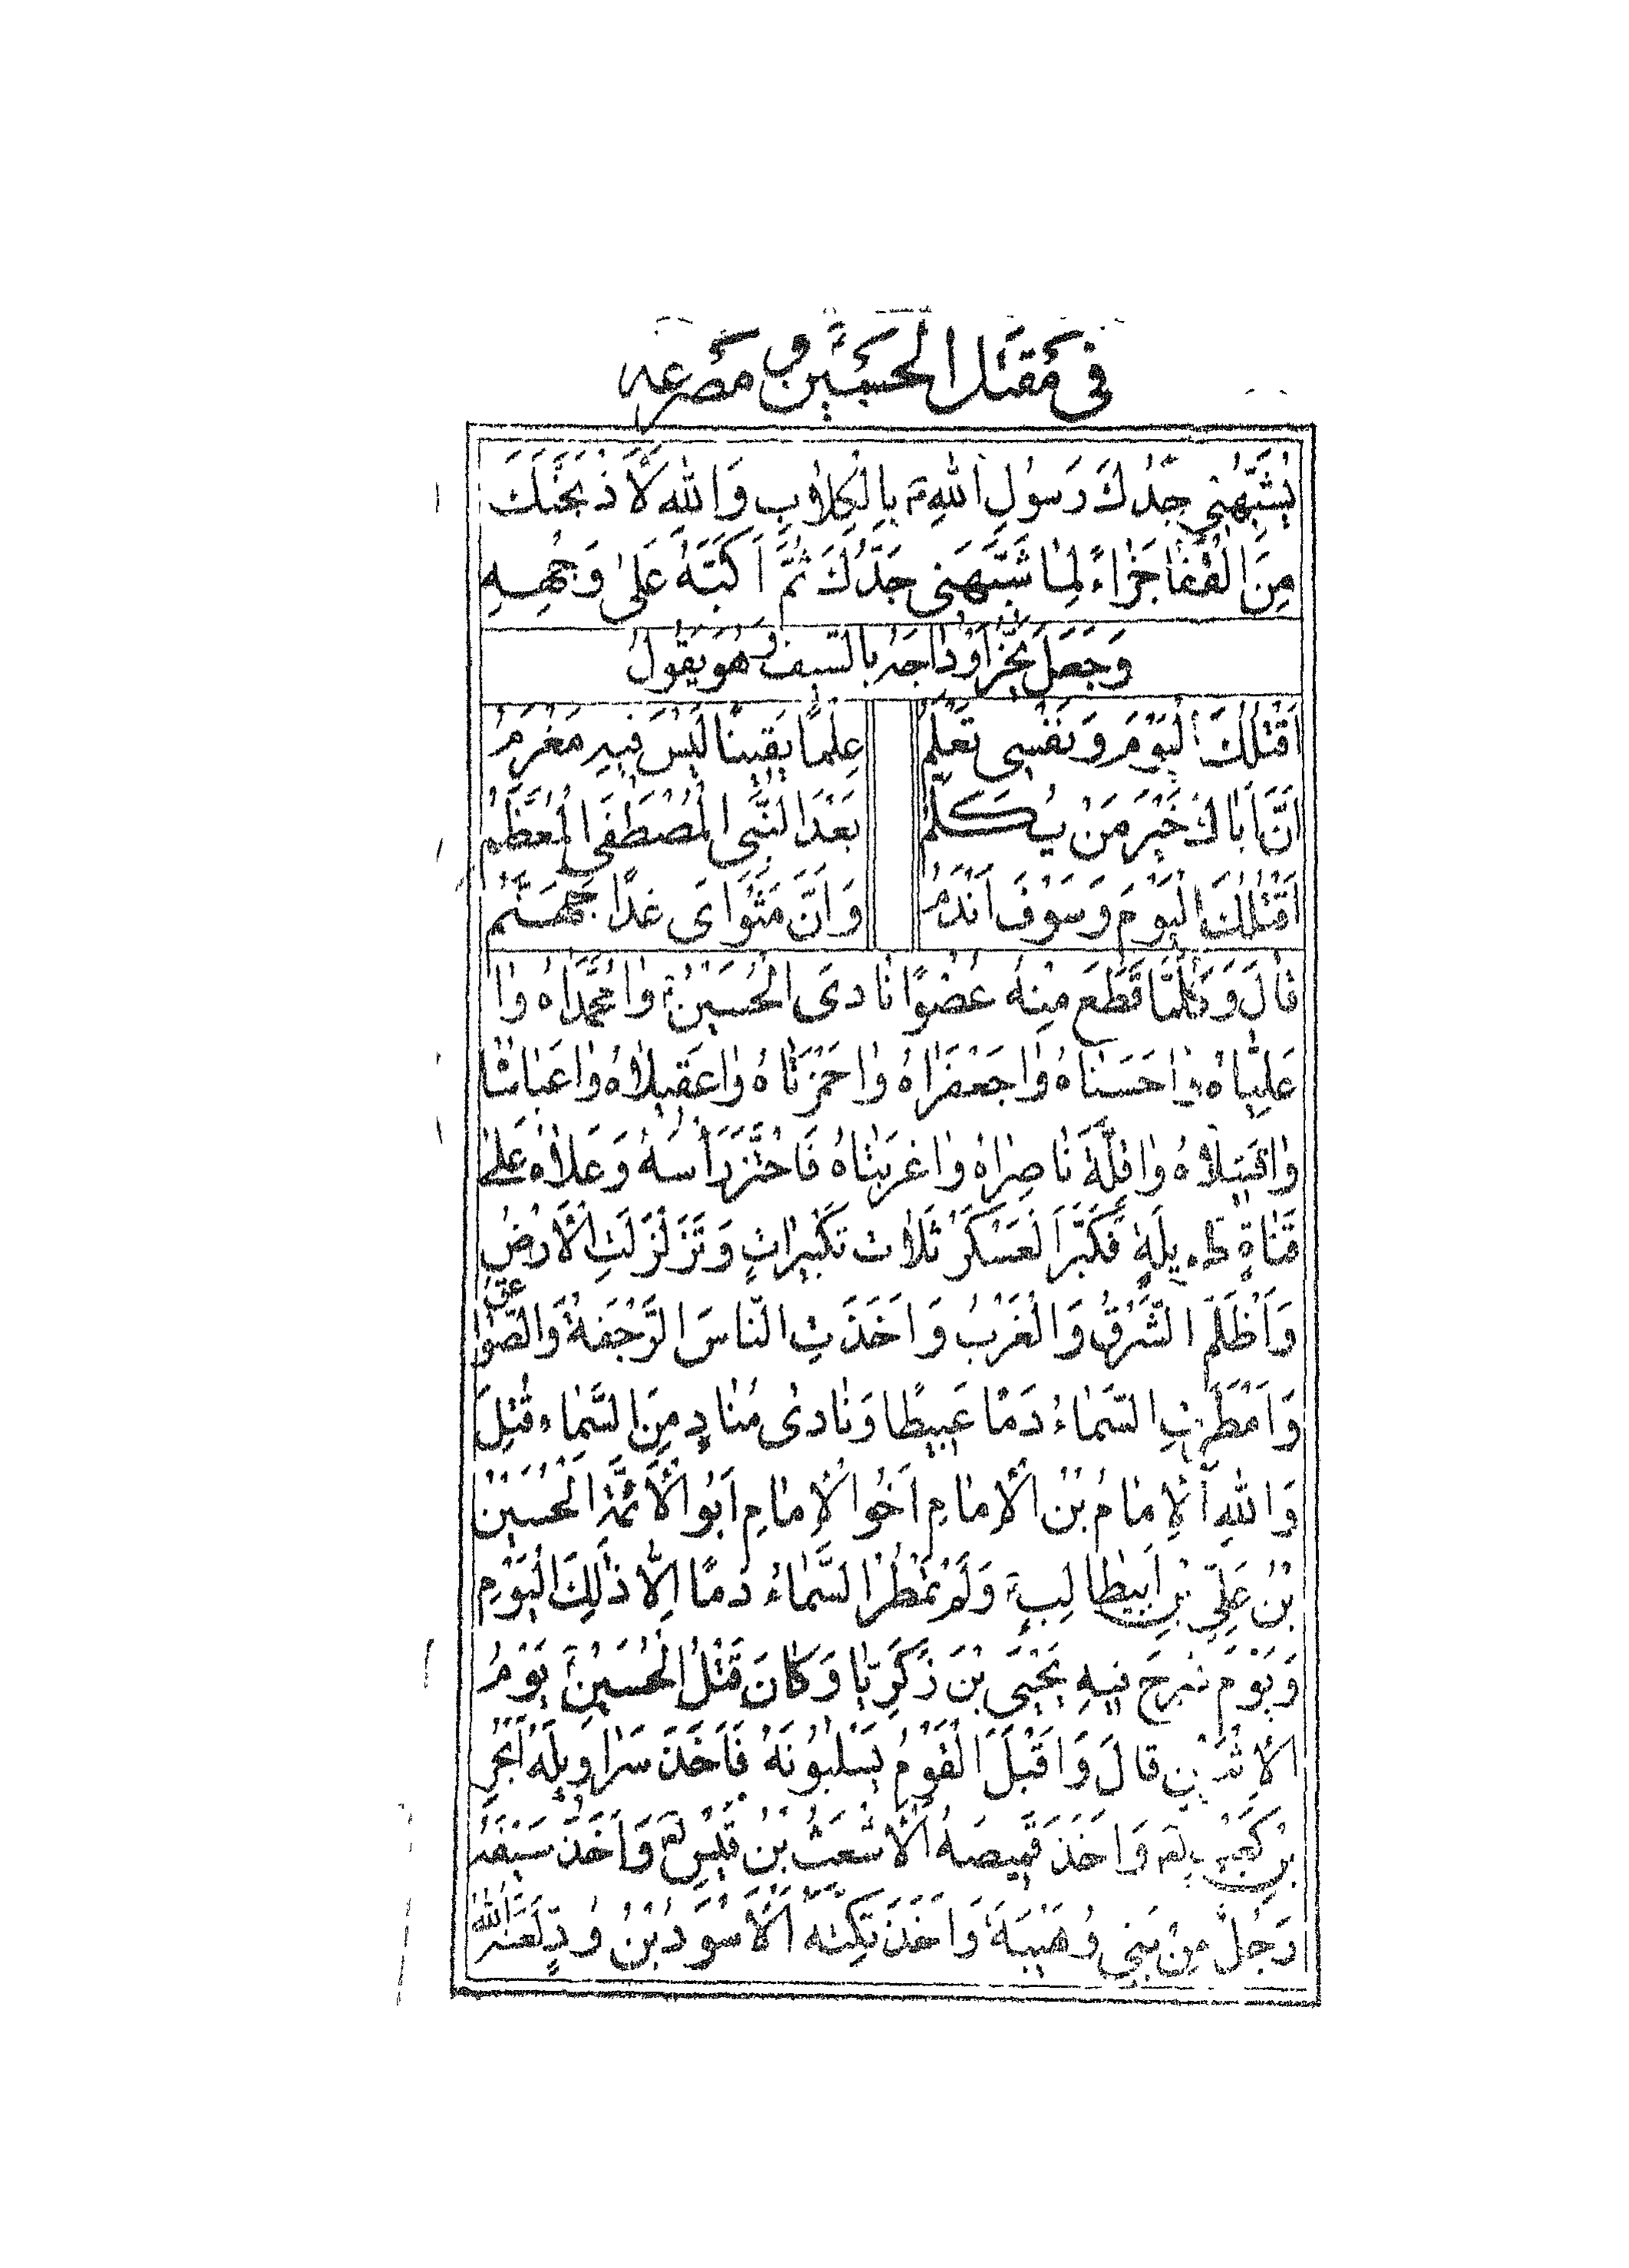 فى مَقتَل الحسَين و مصرعه
يُشَبِّهُنى جَدُّكَ رَسُولِ اللهِ بِالْكِلابِ وَاللهِ لَاَذْبَحَنَّكَ
مِنَ الْقَفٰا جَزٰاءً لِمٰا شَبَّهَنى جَدُّكَ ثُمَّ اَكَبَّهُ عَلىٰ وَجْهِهِ
وَجَعَلَ يَحُزُّ اَوْدٰاجَهُ بِالسَّيفِ وَهُوَ يَقُولُ
اَقْتُلُكَ الْيَوْمَ وَنَفْسى تَعْلَمُ عِلْمًا يَقينًا لَيْسَ فيهِ مَغْرَمُ
اَنَّ اَبٰاكَ خَيْرَ مَنْ يُكَلَّمُ بَعْدَ النَّبِىِّ الْمُصْطَفَى الْمُعَظَّمُ
اَقْتُلُكَ الْيَوْمَ وَسَوْفَ اَنْدَمُ وَاَنَّ مَثْوٰاىَ غَدًا جَهَنَّمُ
قٰالَ وَكُلَّمٰا قَطَعَ مِنْهُ عُضْوًا نٰادىَ الْحُسَيْنُ وٰامُحَمَّدٰاهُ وٰا
عَلِيّٰاهُ وٰاحَسَنٰاهُ وٰاجَعْفَرٰاهُ وٰاحَمْزَتٰاهُ وٰاعَقيلاٰهُ وٰاعَبّٰاسٰا
وٰاقَتيلاٰهُ وٰاقِلَّةَ نٰاصِرٰاهُ وٰاغُرْبَتٰاهُ فَاحْتَزَّ رَأْسَهُ وَعَلاٰهُ عَلىٰ
قَنٰاةٍ طَويلَةٍ فَكَبَّرَ الْعَسْكَرُ ثَلاٰثَ تَكْبيرٰاتٍ وَتَزَلْزَلَتِ الْاَرْضُ
وَاَظْلَمَ الشَّرْقُ وَالْغَرْبُ وَاَخَذَتِ النّٰاسَ الرَّجْفَةُ وَالصَّوٰاعِقُ
وَاَمْطَرَتِ السَّمٰاءُ دَمًا عَبيطًا وَنٰادىٰ مُنٰادٍ مِنَ السَّمٰاءِ قُتِلَ
وَاللهِ اَلْاِمٰامُ بْنُ الْاِمٰامِ اَخُو الْاِمٰامِ اَبُو الْاَئِمَّةِ الْحُسَيْنُ
بْنُ عَلِىِّ بْنِ اَبيطٰالِبٍ وَلَمْ تَمْطُرِ السَّمٰاءُ دَمًا اِلاّٰ ذٰلِكَ الْيَوْمِ
وَيَوْمَ جَرحَ فيهِ يَحْيَى بْنَ زَكَرِيّٰا وَكٰانَ قَتْلُ الْحُسَيْنِ يَوْمُ
الْاِثْنَيْنِ قٰالَ وَاَقْبَلَ الْقَوْمُ يَسْلُبُونَهُ فَاَخَذَ سَرٰاويلَهُ اَبْجَرُ
بْنُ كَعْبٍ لعه وَاَخَذَ قَميصَهُ الْاَشْعَثُ بْنُ قَيْسٍ لعه وَاَخَذَ سَيْفَهُ
رَجُلٌ مِنْ بَنى وُهَيْبَةَ وَاَخَذَ تِكَّتَهُ الْاَسْوَدُ بْنُ وُدٍّ لَعَنَهُ اللهُ